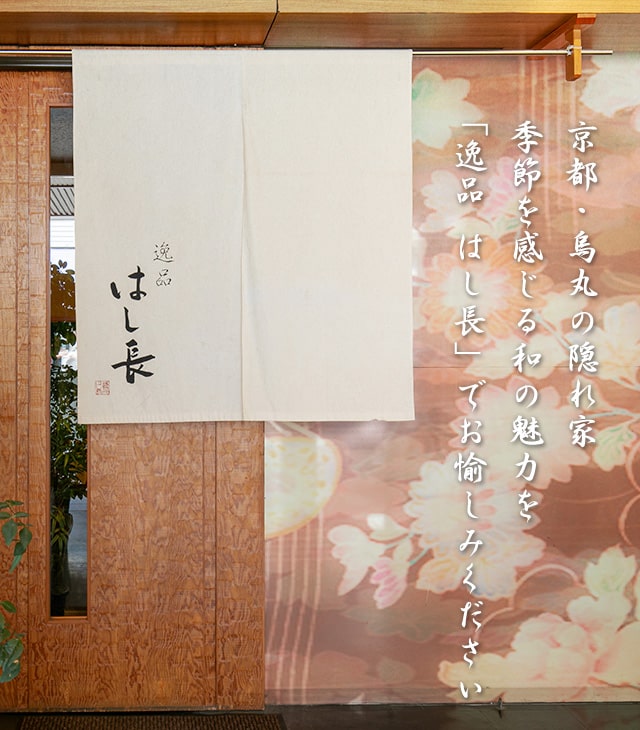 京都・烏丸の隠れ家
季節を感じる和の魅力を
「逸品 はし長」でお愉しみください
逸品
はし長